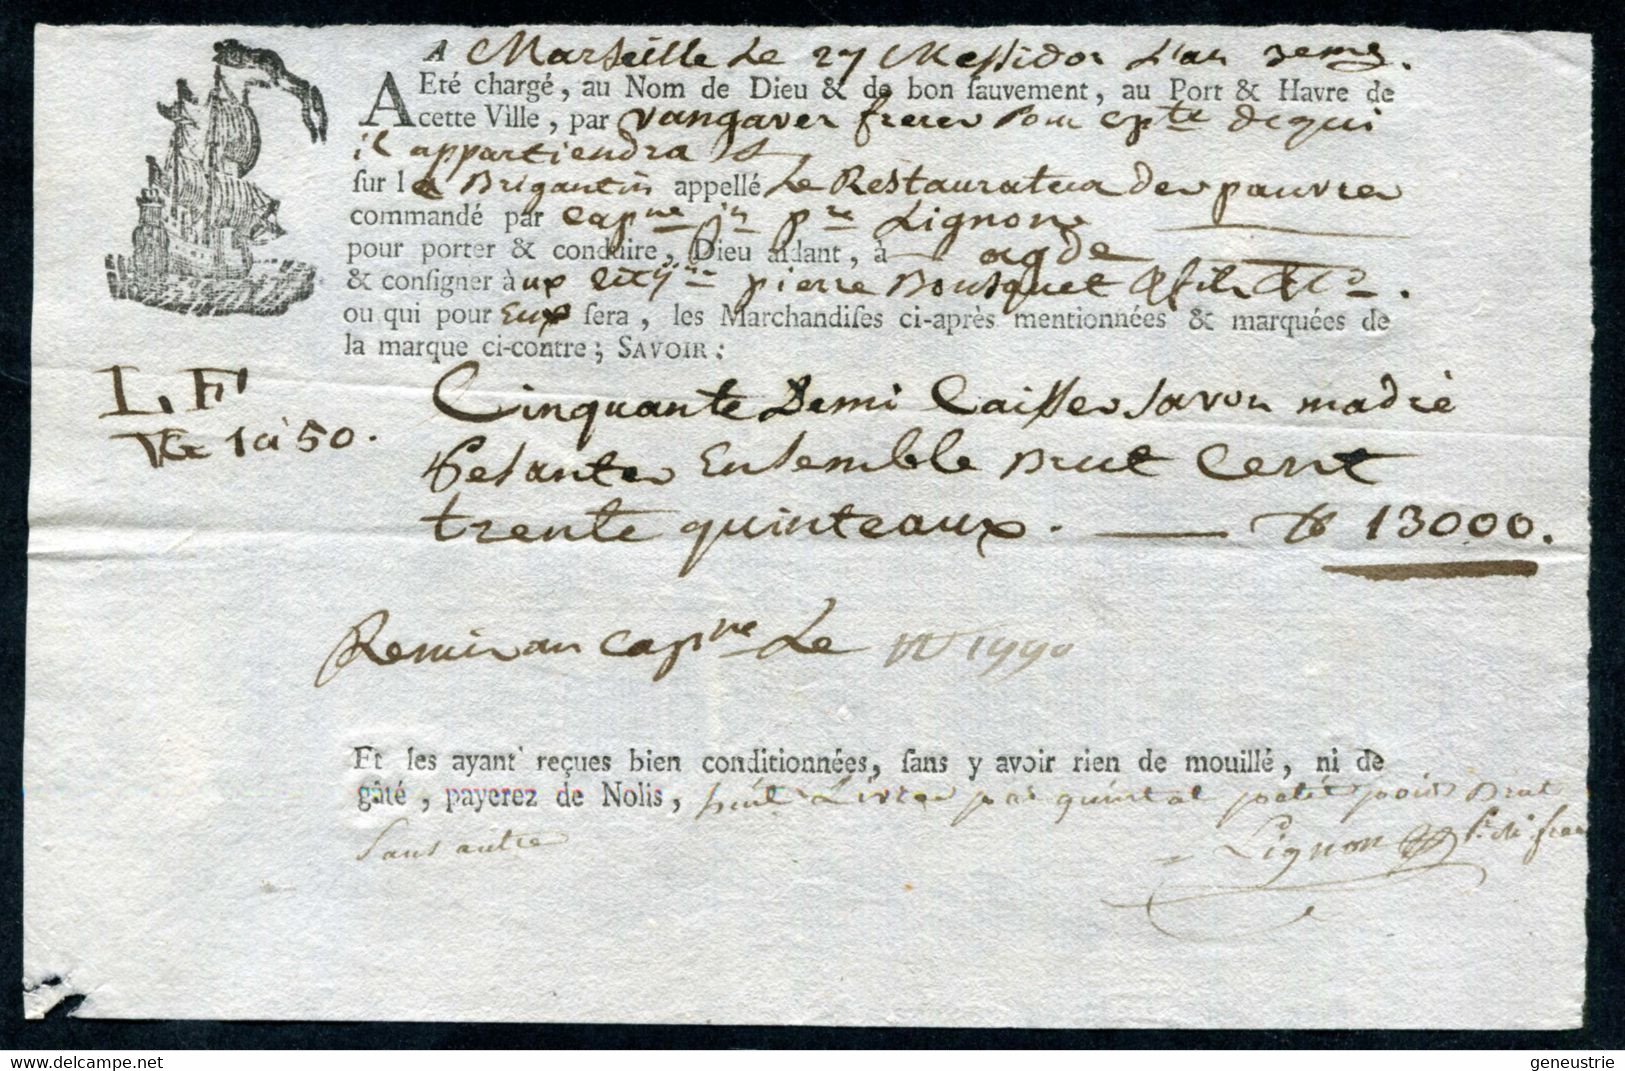 A Marseille Le 27 Messidor L'an 3eme.
A Eté chargé, au Nom de Dieu & de bon sauvement, au Port & Havre de
cette Ville, par Vangaver freres Pour Cpte de qui
il appartiendra
sur le Brigantin appellé Le Restaurateur des pauvres
commandé par Capne jn pre Lignon
pour porter & conduire, Dieu aidant, à agde
& consigner àux pierre Bousquet & fils & Co.
ou qui pour Eux sera, les Marchandises ci-après mentionnées & marquées de
la marque ci-contre; SAVOIR:
I. F
No 1 à 50.
Cinquante Demi Caisses savon madré
Pesantes Ensemble Brut Cent
trente quinteaux. — 13000.
Remis au Capne Le
Et les ayant reçues bien conditionnées, sans y avoir rien de mouillé, ni de
gâté, payerez de Nolis, huit Livres par quintal petit poids Brut
sans autre
Lignon
geneustrie
www.delcampe.net